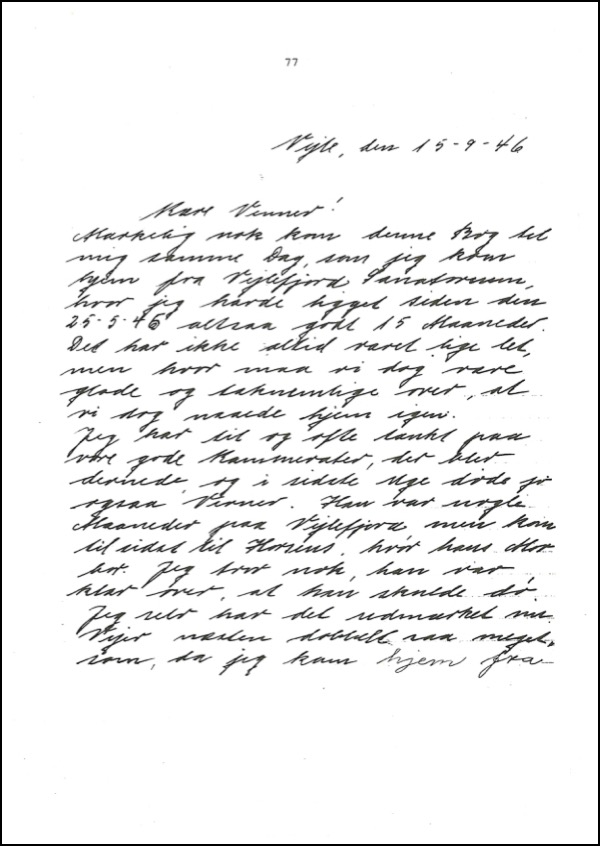 77
Vejle, den 15-9-46
Kære Venner!
Mærkelig nok kom denne Bog til
mig samme Dag, som jeg kom
hjem fra Vejlefjord Sanatorium,
hvor jeg havde ligget siden den
25-5-45 altsaa godt 15 Maaneder.
Det har ikke altid været lige let,
men hvor maa vi dog være
glade og taknemlige over, at
vi dog naaede hjem igen.
Jeg har tit og ofte tænkt paa
vore gode Kammerater, der blev
dernede og i sidste Uge døde jo
ogsaa Verner. Han var nogle
Maaneder paa Vejlefjord men kom
til sidst til Horsens, hvor hans Mor
bor. Jeg tror nok, han var
klar over, at han skulde dø.
Jeg selv har det udmærket nu
Vejer næsten dobbelt saa meget,
som, da jeg kom hjem fra